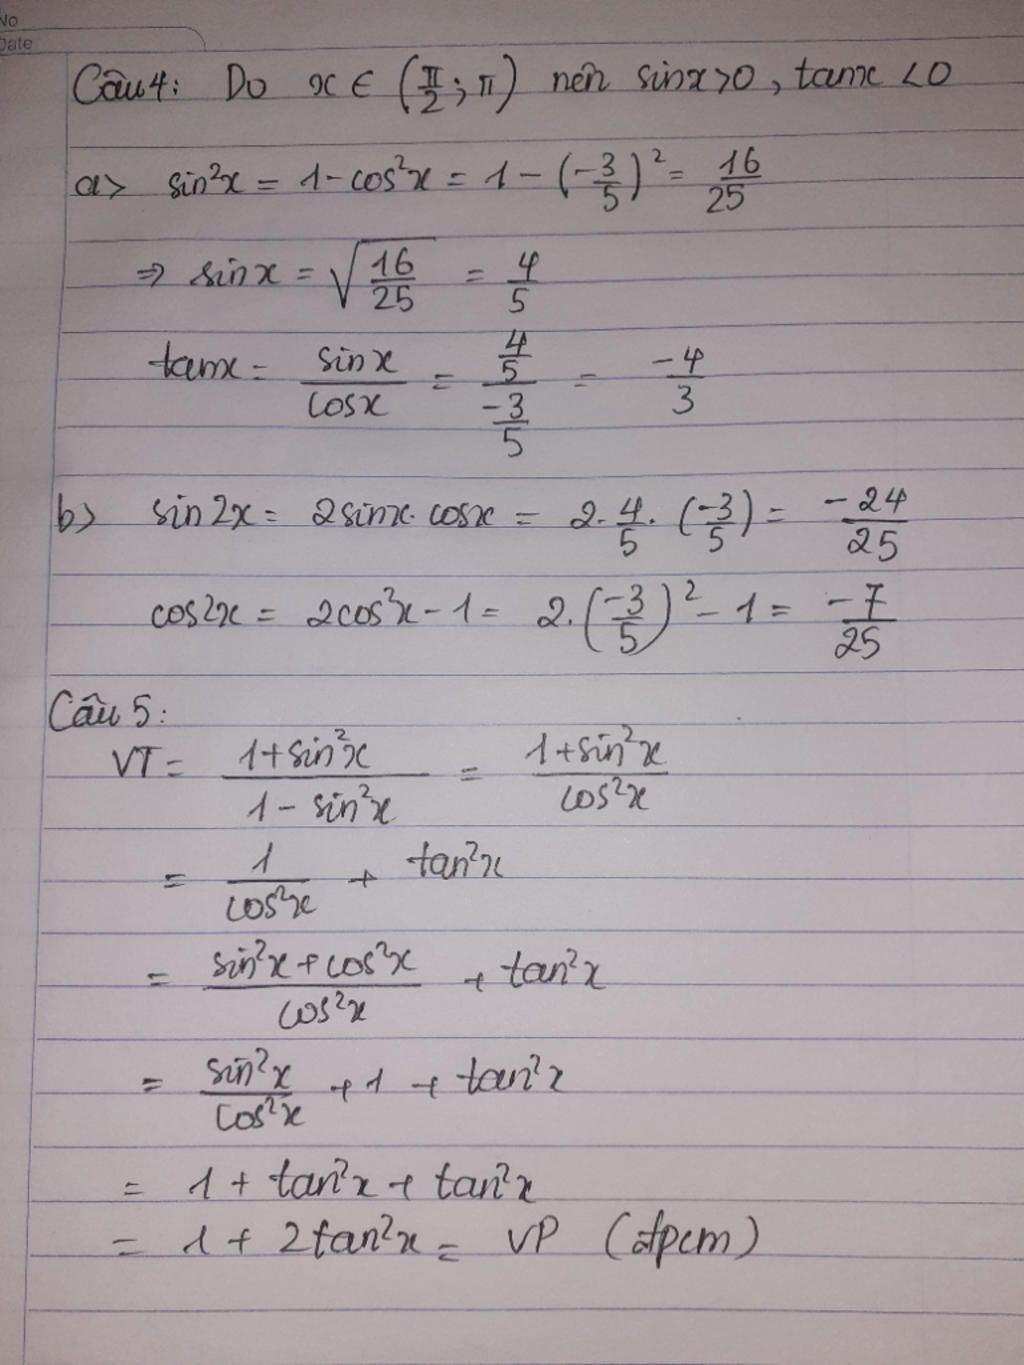 No
Date
Câu 4: Do x ∈ (π/2; π) nên sinx>0, tanx <0
a> sin²x = 1-cos²x = 1-(-3/5)² = 16/25
⇒ sinx = √(16/25) = 4/5
tanx = sinx/cosx = (4/5)/(-3/5) = -4/3
b> sin2x = 2sinx.cosx = 2.4/5.(-3/5) = -24/25
cos2x = 2cos²x - 1 = 2.(-3/5)² - 1 = -7/25
Câu 5:
VT = (1+sin²x)/(1-sin²x) = (1+sin²x)/(cos²x)
= 1/(cos²x) + tan²x
= (sin²x+cos²x)/(cos²x) + tan²x
= sin²x/cos²x + 1 + tan²x
= 1 + tan²x + tan²x
= 1 + 2tan²x = VP (đpcm)